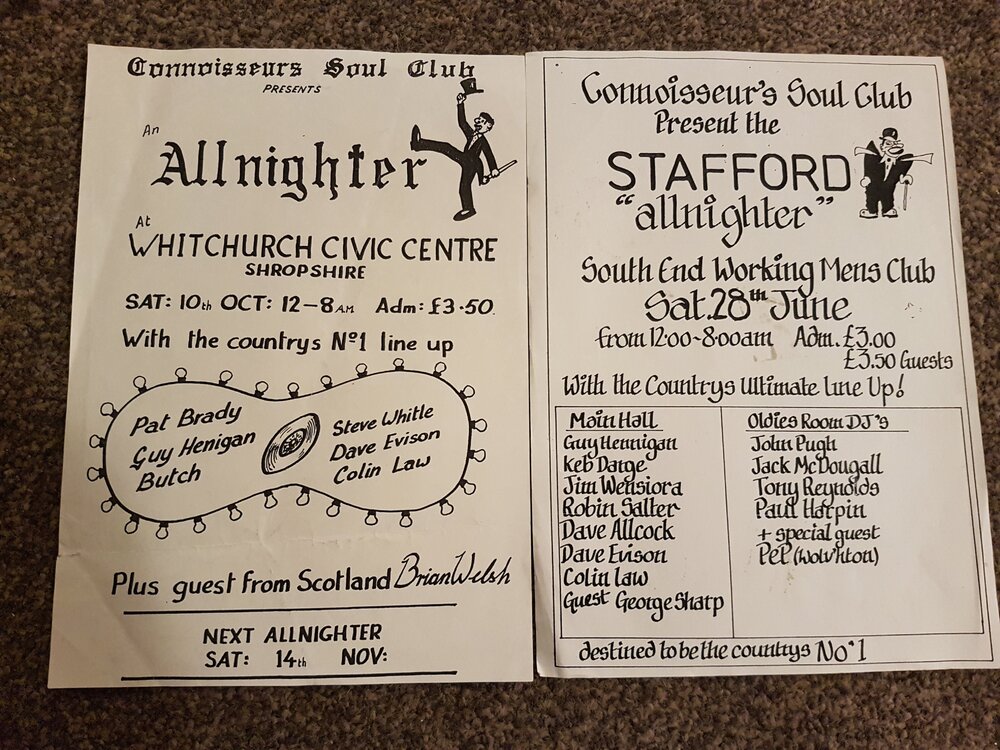 Connoisseurs Soul Club
PRESENTS
An
Allnighter
At
WHITCHURCH CIVIC CENTRE
SHROPSHIRE
SAT: 10th OCT: 12–8AM Adm: £3·50
With the countrys Nº1 line up
Pat Brady
Guy Henigan
Butch
Steve Whitle
Dave Evison
Colin Law
Plus guest from Scotland Brian Welsh
NEXT ALLNIGHTER
SAT: 14th NOV:
Connoisseur's Soul Club
Present the
STAFFORD
"allnighter"
South End Working Mens Club
Sat. 28th June
from 12·00~8·00am Adm. £3.00
£3.50 Guests
With the Countrys Ultimate Line Up!
Main Hall
Guy Hennigan
Keb Darge
Jim Wensiora
Robin Salter
Dave Allcock
Dave Evison
Colin Law
Guest George Sharp
Oldies Room DJ's
John Pugh
Jack McDougall
Tony Reynolds
Paul Harpin
+ special guest
PEP (Wolv'hton)
destined to be the countrys No°1